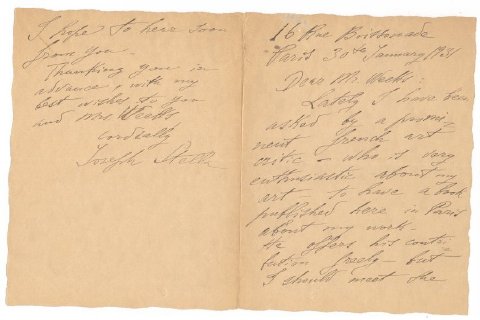 16 Rue Boissonade
Paris 30th January 1931
Dear Mr. Weeks:
Lately I have been
asked by a promi-
nent french art
critic - who is very
enthusiastic about my
art - to have a book
published here in Paris
about my work -
He offers his contri-
bution freely - but
I should meet the
I hope to hear soon
from you -
Thanking you in
advance, with my
best wishes to you
and Mrs Weeks
cordially
Joseph Stella